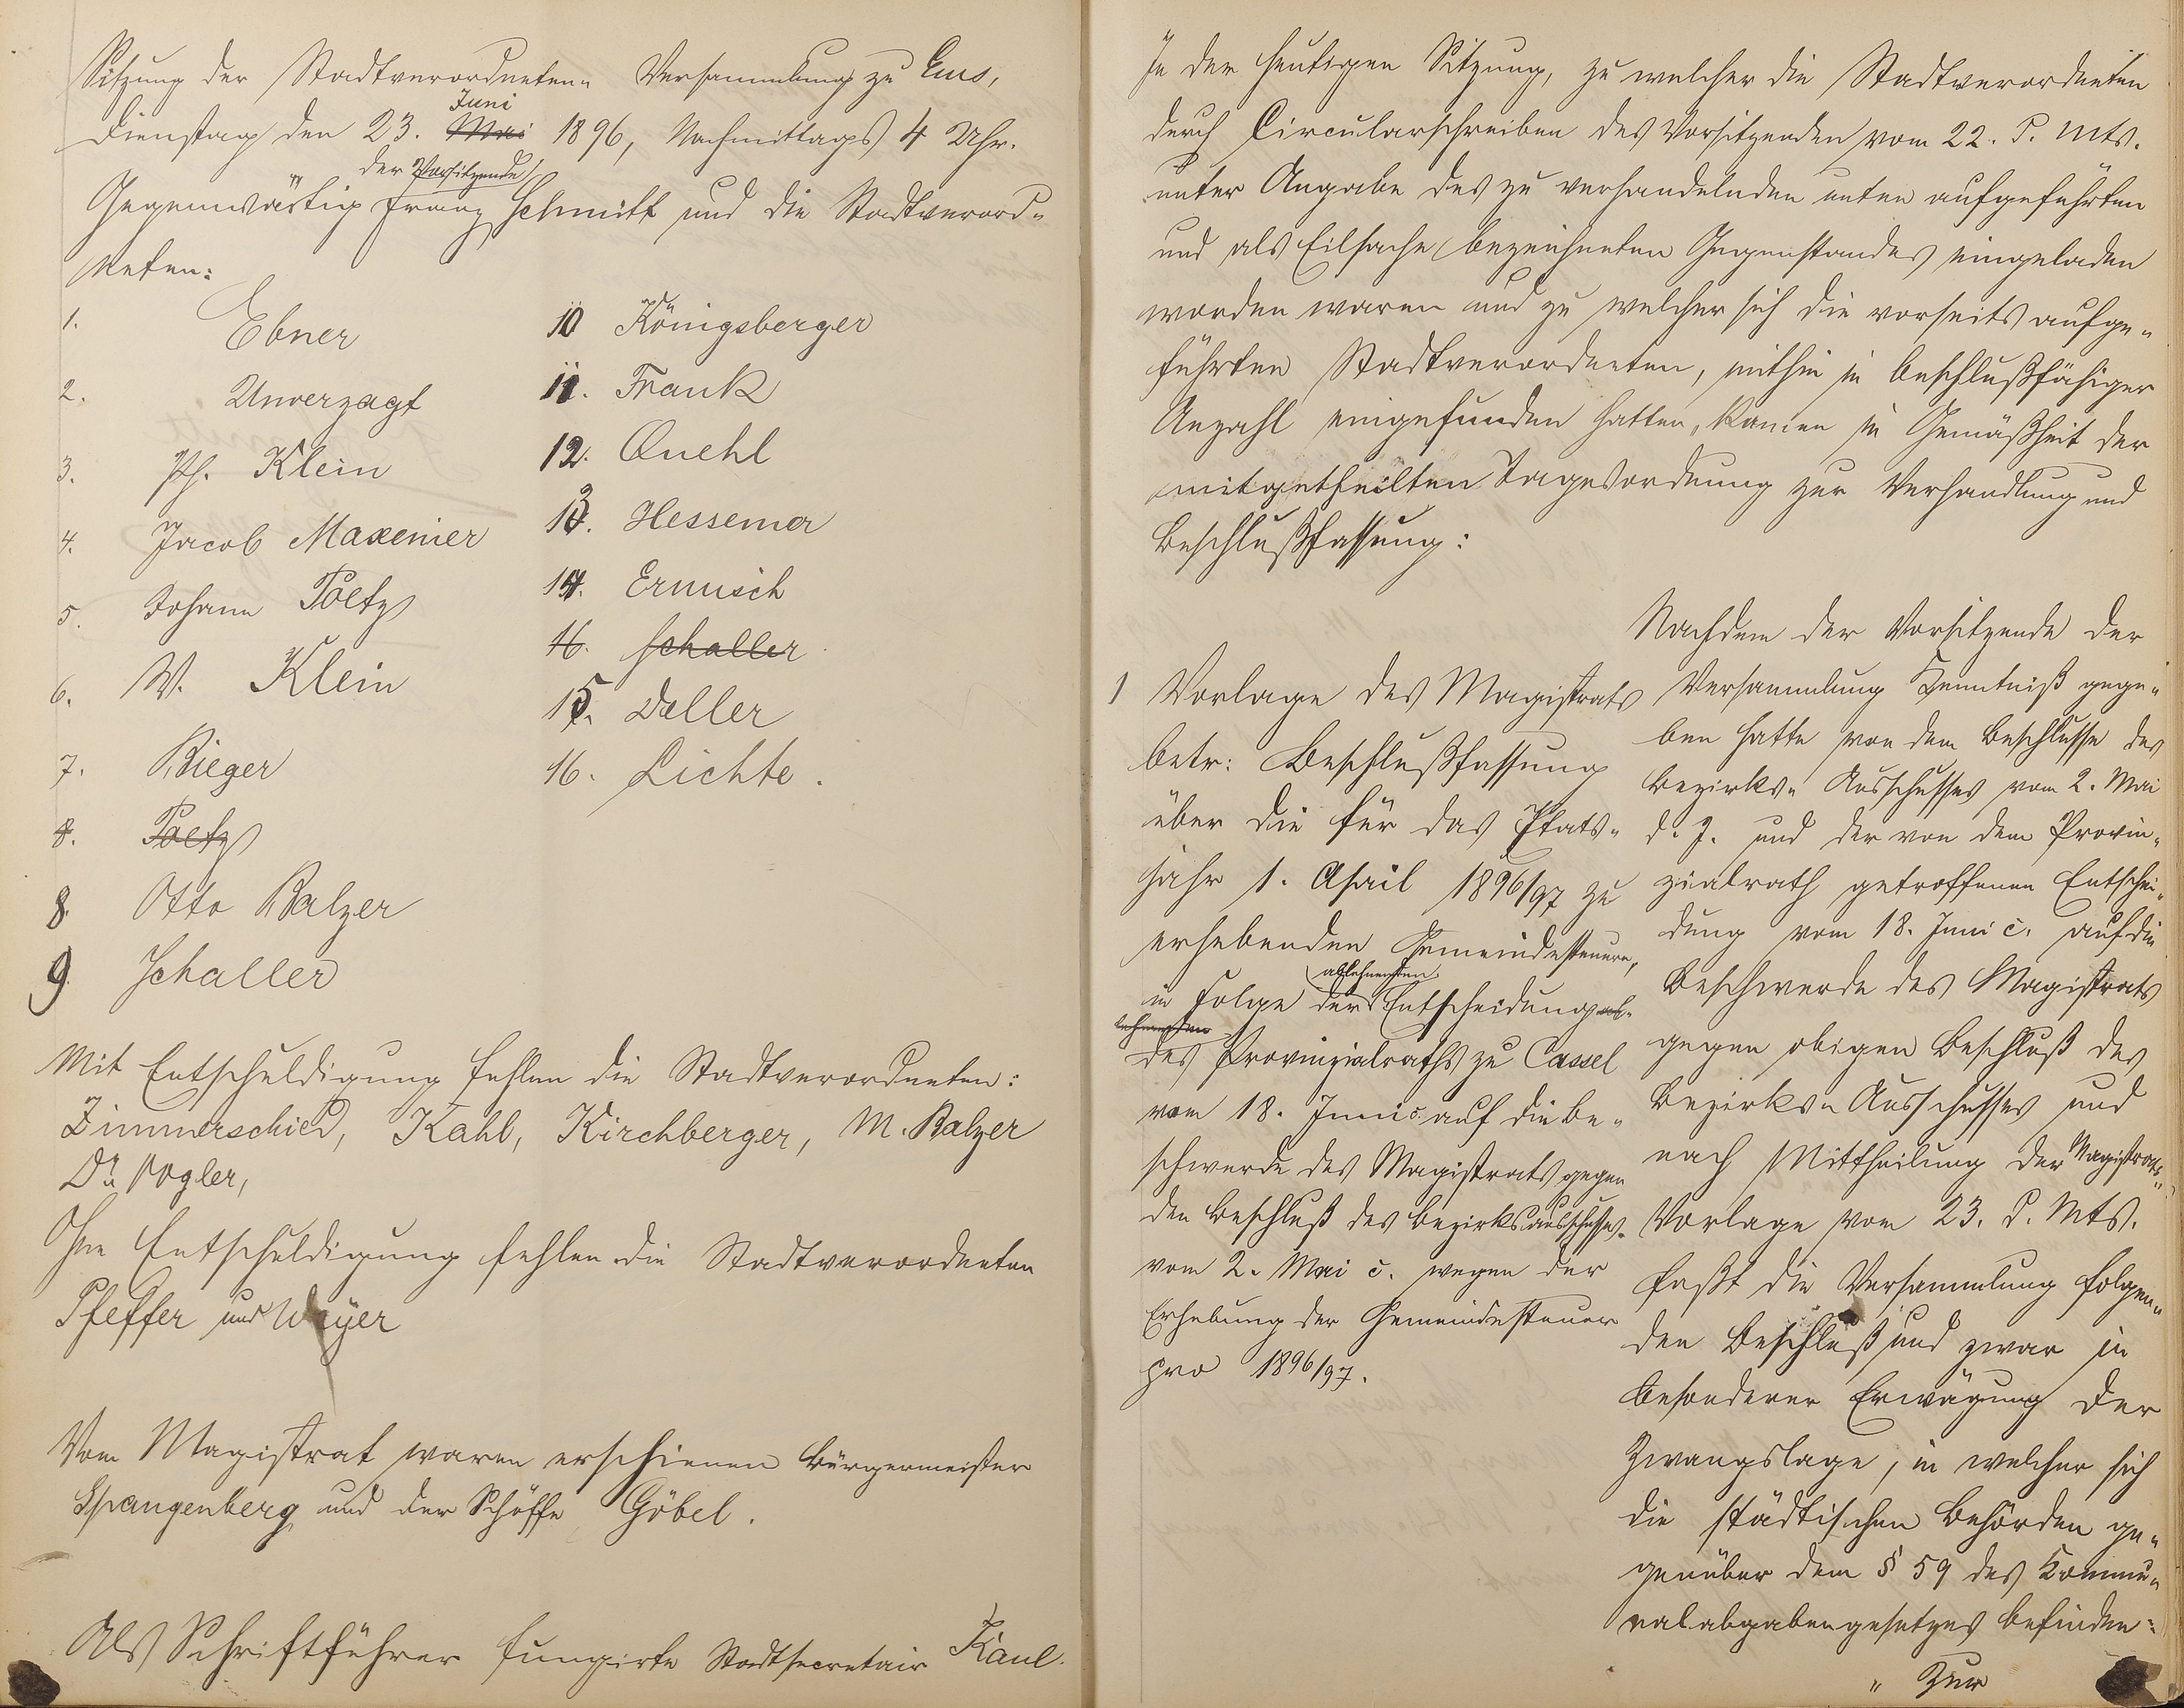 Sitzung der Stadtverordneten- Versammlung zu Ems,
Dienstag den 23. Mai Juni 1896, Nachmittags 4 Uhr.
Gegenwärtig der Vorsitzende Franz Schmitt und die Stadtverord-
neten:
1. Ebner
2. Unverzagt
3. Ph. Klein
4. Jacob Maxeiner
5. Johann Poetz
6. W. Klein
7. Rieger
8. Poetz
8. Otto Balzer
9. Schaller
10 Königsberger
11. Frank
12. Quehl
13. Hessemer
14. Ermisch
16. Schaller
15. Deller
16. Lichte.
Mit Entschuldigung fehlen die Stadtverordneten:
Zimmerschied, Kahl, Kirchberger, M. Balzer
Dr. Vogler,
Ohne Entschuldigung fehlen die Stadtverordneten
Pfeffer und Weyer
Vom Magistrat waren erschienen Bürgermeister
Spangenberg und der Schöffe Göbel.
Als Schriftführer fungirte Stadtsecretair Kaul.
In der heutigen Sitzung, zu welcher die Stadtverordneten
durch Circularschreiben des Vorsitzenden vom 22. d. Mts.
unter Angabe des zu verhandelnden unten aufgeführten
und als Eilsache bezeichneten Gegenstandes eingeladen
worden waren und zu welcher sich die vorseits aufge-
führten Stadtverordneten, mithin in beschlußfähiger
Anzahl eingefunden hatten, kamen in Gemäßheit der
mitgetheilten Tagesordnung zur Verhandlung und
Beschlußfassung:
1 Vorlage des Magistrats
betr: Beschlußfassung
über die für das Etats-
jahr 1. April 1896/97 zu
erhebenden Gemeindesteuern,
in Folge der ablehnenden Entscheidung ab-
lehnenden
des Provinzialraths zu Cassel
vom 18. Juni c. auf die Be-
schwerde des Magistrats gegen
den Beschluß des Bezirksausschusses
vom 2. Mai c. wegen der
Erhebung der Gemeindesteuer
pro 1896/97.
Nachdem der Vorsitzende der
Versammlung Kenntniß gege-
ben hatte von dem Beschlusse des
Bezirks- Ausschusses vom 2. Mai
d. J. und der von dem Provin-
zialrath getroffenen Entschei-
dung vom 18. Juni c. auf die
Beschwerde des Magistrats
gegen obigen Beschluß des
Bezirks- Ausschusses und
nach Mittheilung der Magistrats-
Vorlage vom 23. d. Mts.
faßt die Versammlung folgen-
den Beschluß und zwar in
besonderer Erwägung der
Zwangslage, in welcher sich
die städtischen Behörden ge-
genüber dem § 59 des Kommu-
nalabgabengesetzes befinden:
" Zur